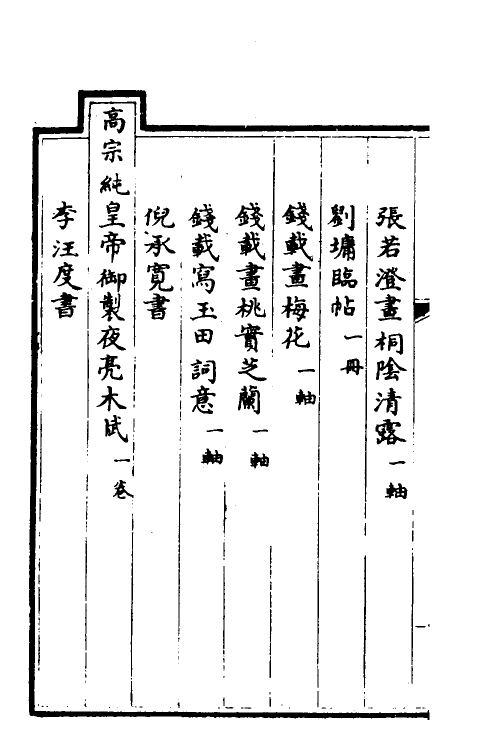 張若澄畫桐陰清露一軸
劉墉臨帖一冊
錢載畫梅花一軸
錢載畫桃實芝蘭一軸
錢載寫玉田詞意一軸
倪承寬書
高宗純皇帝御製夜亮木賦一卷
李汪度書